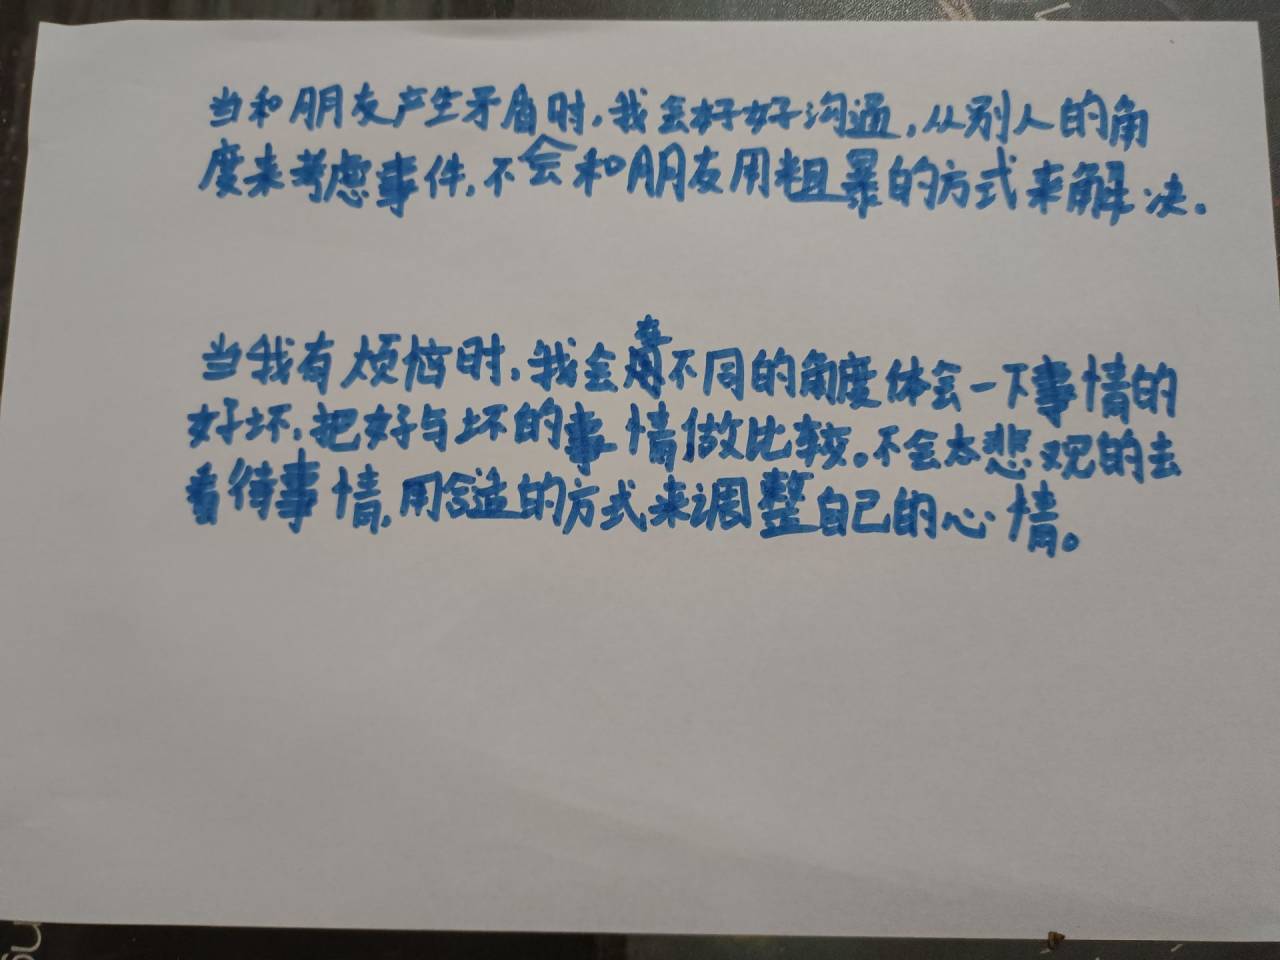 当和朋友产生矛盾时，我会好好沟通，从别人的角
度来考虑事件，不会和朋友用粗暴的方式来解决。
当我有烦恼时，我会在不同的角度体会一下事情的
好坏，把好与坏的事情做比较。不会太悲观的去
看待事情，用合适的方式来调整自己的心情。